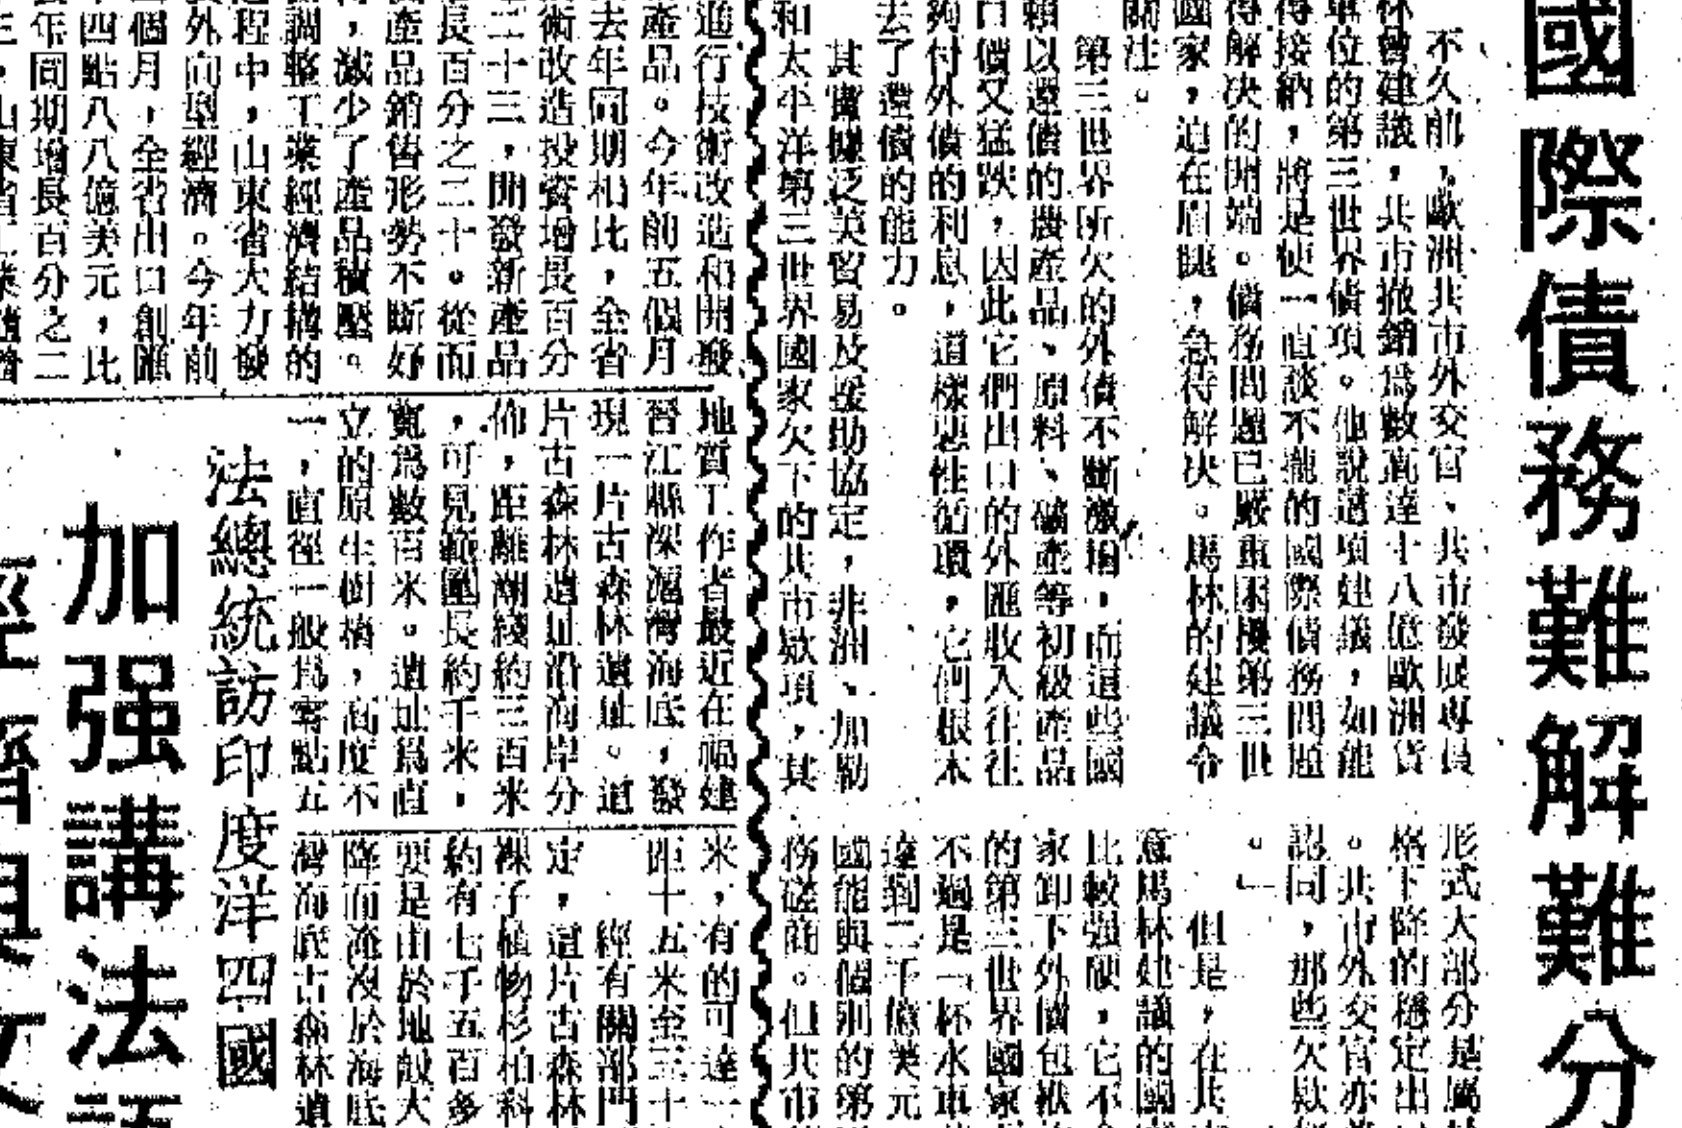 國際債務難解難分
不久前，歐洲共市外交官、共市發展專員
林會建議，共市撤銷爲數高達十八億歐洲貨
單位的第三世界債項。他說這項建議，如能
得接納，將是使一直談不攏的國際債務問題
得解决的開端。債務問題已嚴重困擾第三世
國家，迫在眉睫，急待解决。馬林的建議令
關注。
第三世界所欠的外債不斷激增，而這些國
賴以還債的農產品、原料、礦產等初級產品
口價又猛跌，因此它們出口的外匯收入往往
夠付外債的利息，這樣惡性循環，它們根本
去了還債的能力。
其實賺泛美貿易及援助協定，非洲、加勒
和太平洋第三世界國家欠下的共市欵項，其
形式大部分是屬
格下降的穩定出
。共市外交官亦
認同，那些欠欵
。」
但是，在共
意馬林建議的國
比較强硬，它不
家卸下外債包袱
的第三世界國家
不過是「杯水車
達到二千億美元
國能與個別的第
務磋商。但共市
通行技術改造和開發
產品。今年前五個月
去年同期相比，全省
術改造投資增長百分
二十三，開發新產品
長百分之二十。從而
產品銷售形勢不斷好
，減少了產品積壓。
調整工業經濟結構的
程中，山東省大力發
外向型經濟。今年前
個月，全省出口創匯
四點八八億美元，比
年同期增長百分之二
地質工作者最近在福建
晉江縣深滬灣海底，發
現一片古森林遺址。這
片古森林遺址沿海岸分
佈，距離潮綫約三百米
，可見範圍長約千米，
寬爲數百米。遺址爲直
立的原生樹樁，高度不
一，直徑一般爲零點五
米，有的可達一
距十五米至三十
經有關部門
定，這片古森林
裸子植物杉柏科
約有七千五百多
要是由於地殼大
降而淹沒於海底
灣海底古森林遺
法總統訪印度洋四國
加强講法語